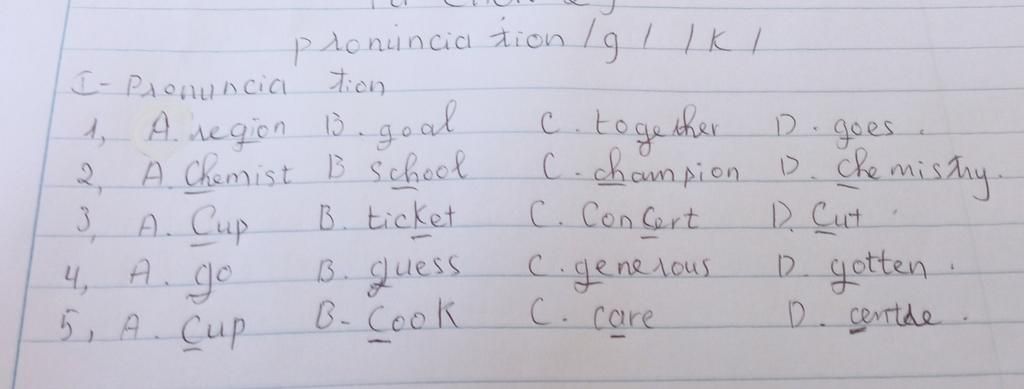 pronuncia tion /g/ /k/
I- Pronuncia tion
1, A. region B. goal C. together D. goes.
2, A. Chemist B school C. champion D. chemistry.
3, A. Cup B. ticket C. Concert D. Cut.
4, A. go B. guess C. generous D. gotten.
5, A. Cup B- Cook C. care D. centde.